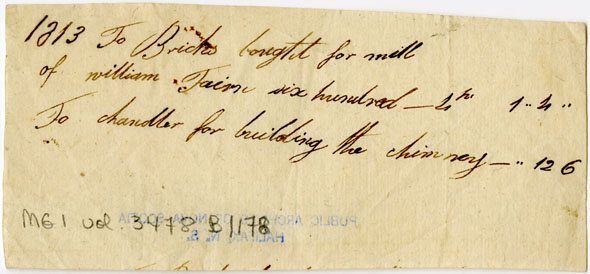 1813 To Bricks bought for mill
of william six hundred — 4/ 1 " 4 "
To chandler for building the chimney — " 12 6
PUBLIC ARCHIVES OF NOVA SCOTIA
HALIFAX, N. S.
MG 1 vol. 3478 B/178